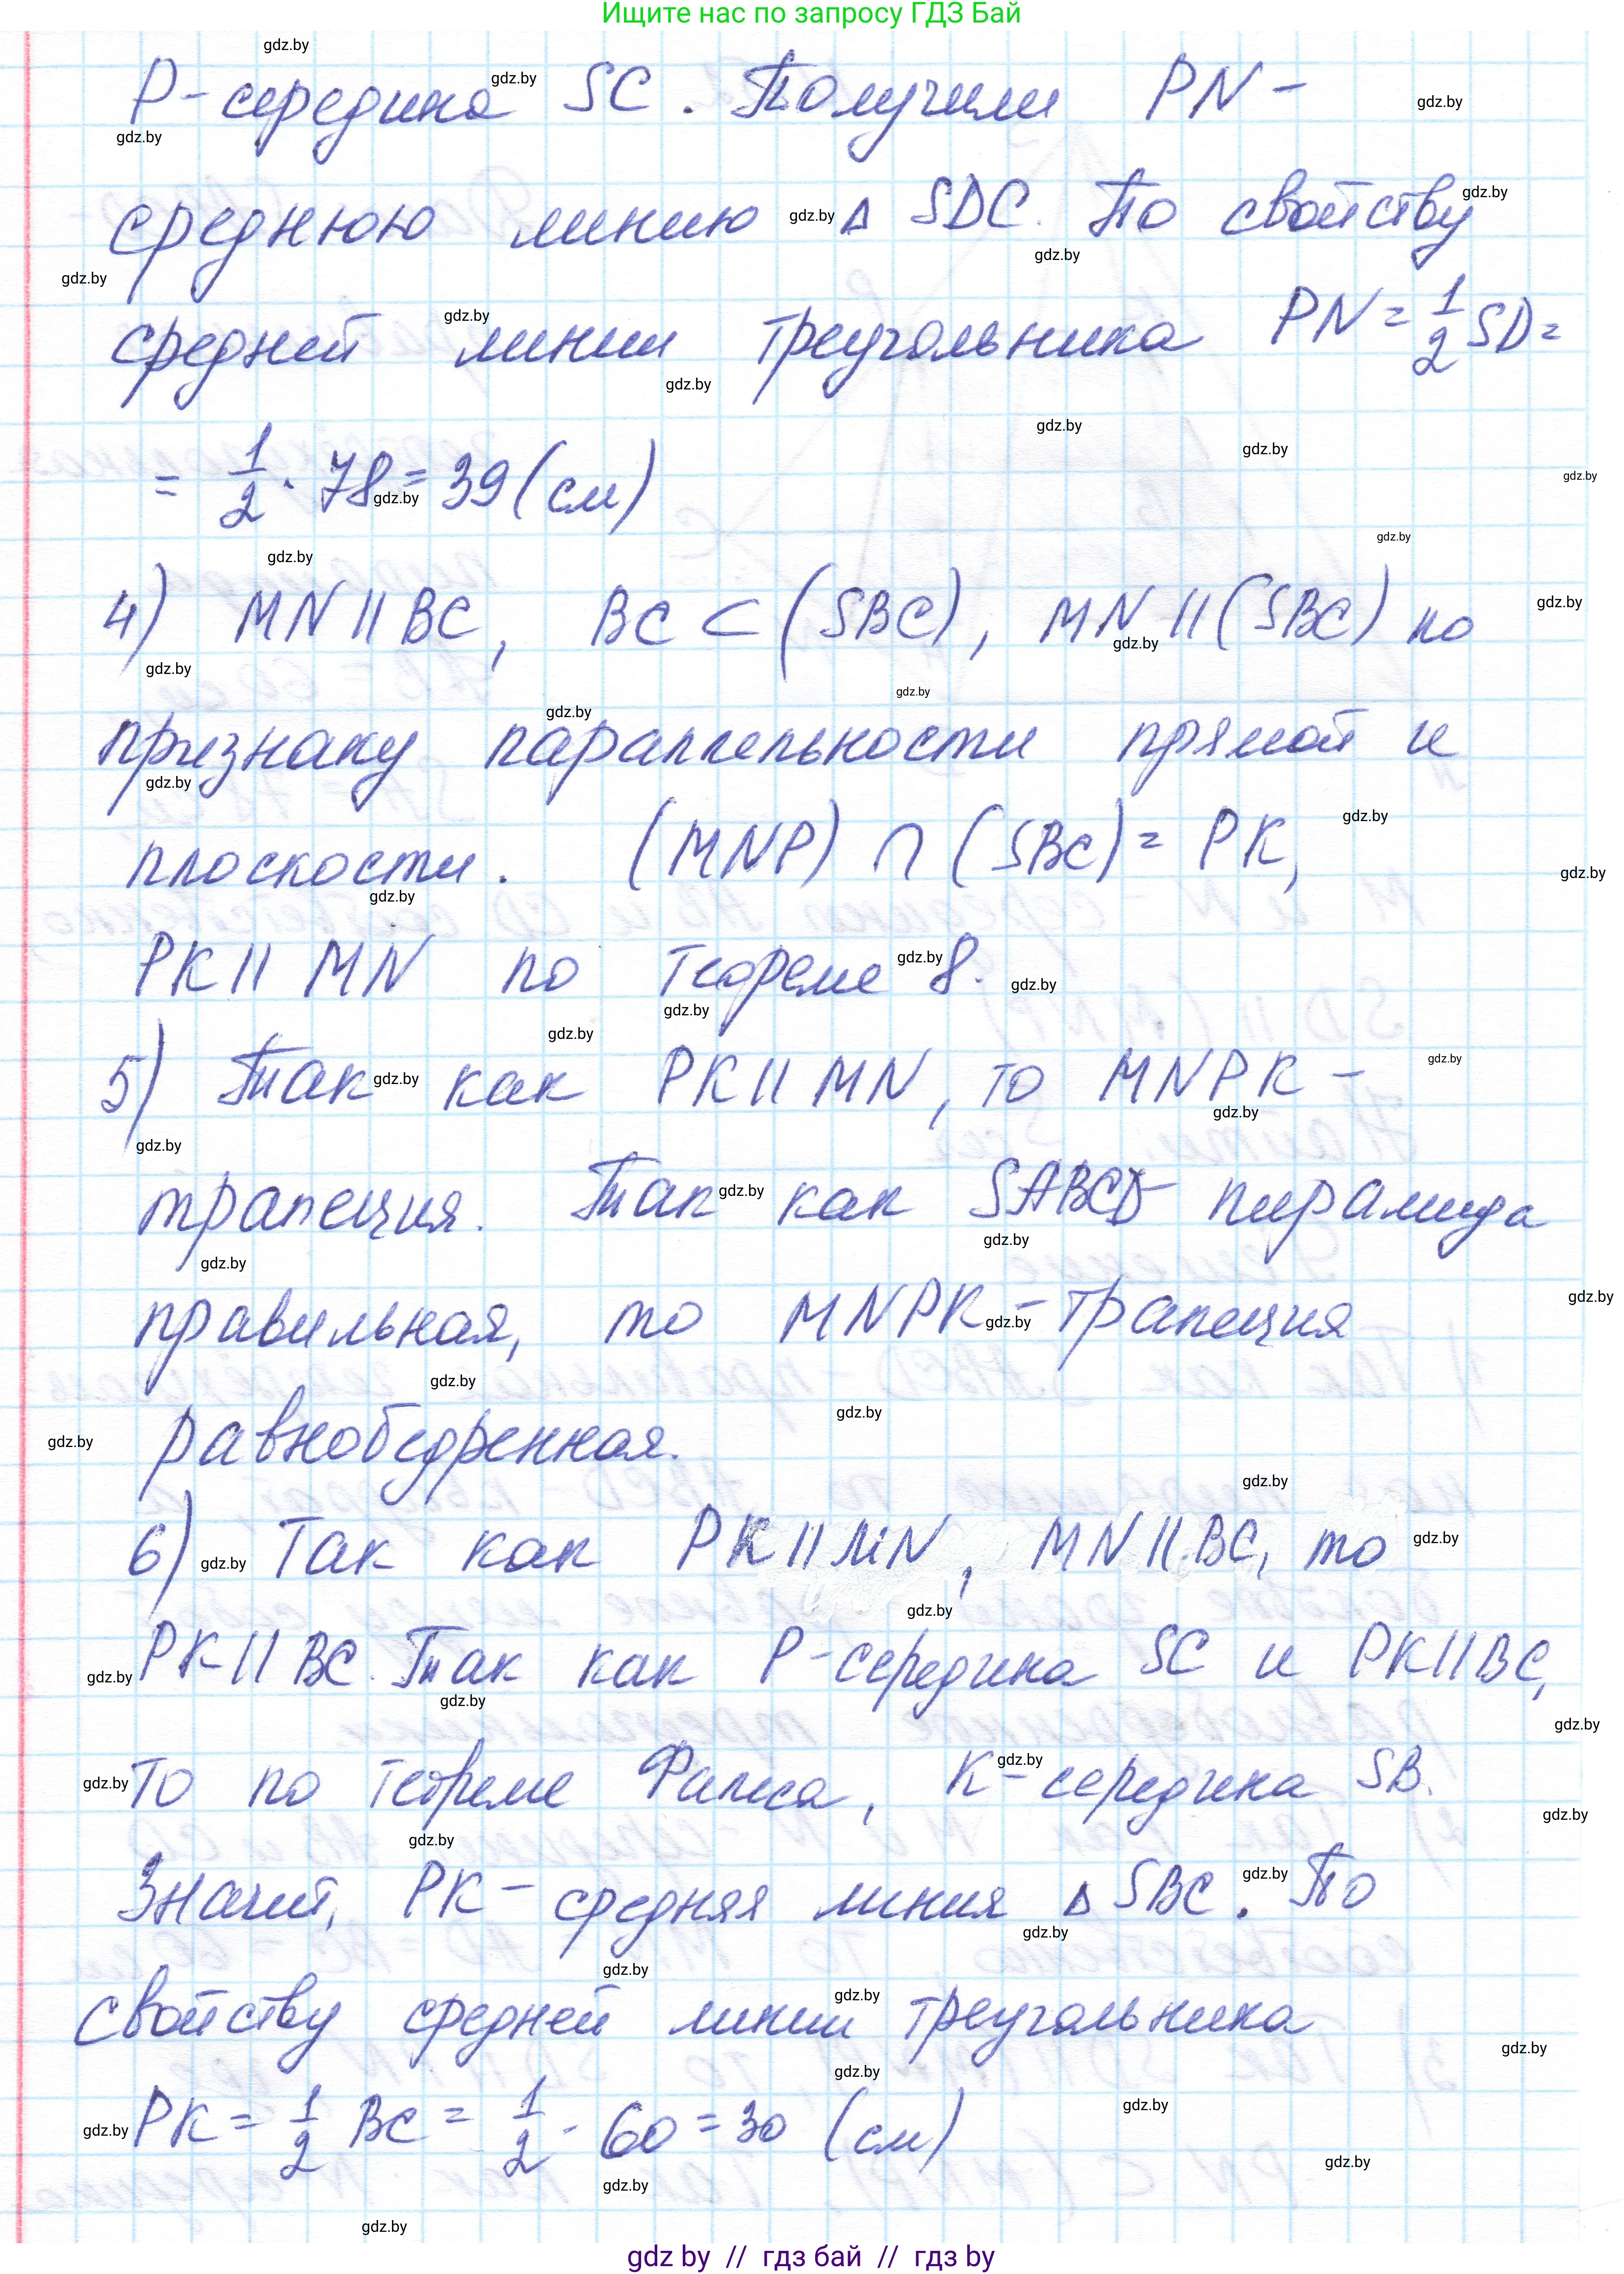 Ищите нас по запросу ГДЗ Бай
P-середина SC. Получили PN -
среднюю линию Δ SDC. По свойству
средней линии треугольника PN = 1/2 SD =
= 1/2 · 78 = 39 (см)
4) MN || BC, BC ⊂ (SBC), MN || (SBC) по
признаку параллельности прямой и
плоскости. (MNP) ∩ (SBC) = PK,
PK || MN по теореме 8.
5) Так как PK || MN, то MNPK -
трапеция. Так как SABCD пирамида
правильная, то MNPK - трапеция
равнобедренная.
6) Так как PK || MN, MN || BC, то
PK || BC. Так как P-середина SC и PK || BC,
то по теореме Фалеса, K - середина SB.
Значит, PK - средняя линия Δ SBC. По
свойству средней линии треугольника
PK = 1/2 BC = 1/2 · 60 = 30 (см)
gdz by // гдз бай // гдз by